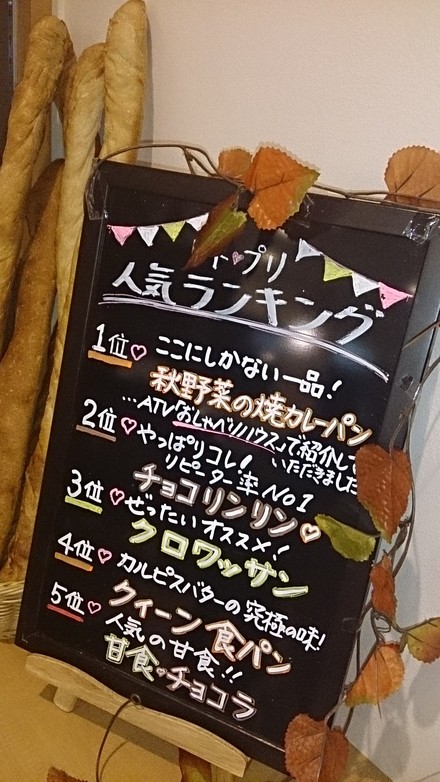 ト♡プリ
人気ランキング
1位♡ ここにしかない一品!
秋野菜の焼カレーパン
…ATV「おしゃべりハウス」で紹介して
いただきました
2位♡やっぱりコレ!
リピーター率No1
チョコリンリン♡
3位♡ぜったいオススメ!
クロワッサン
4位♡カルピスバターの究極の味!
クィーン食パン
5位♡人気の甘食!!
甘食・チョコラ